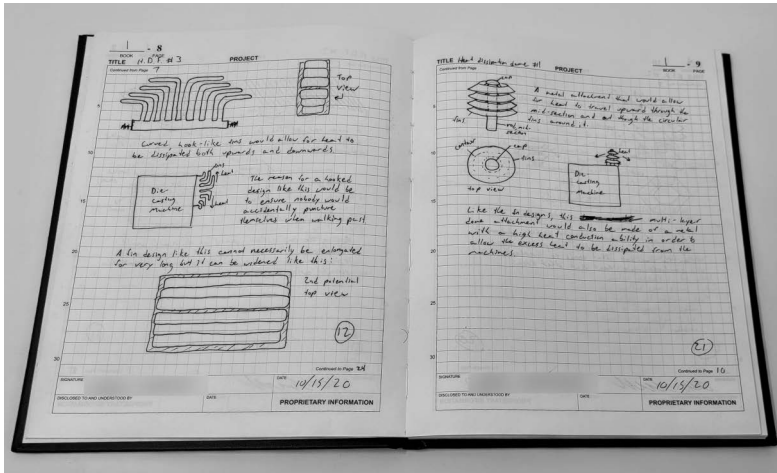 1 - 8
BOOK PAGE
TITLE H.D.F. #3 PROJECT
Continued from Page 7
Top
view
#1
5
Curved, hook-like fins would allow for heat to
be dissipated both upwards and downwards.
10
fins
heat
Die-
Casting
Machine
heat
The reason for a hooked
design like this would be
to ensure nobody would
accidentally puncture
themselves when walking past
15
20
A fin design like this cannot necessarily be enlongated
for very long but it can be widened like this:
2nd potential
top view
25
12
30
Continued to Page 24
SIGNATURE DATE 10/15/20
DISCLOSED TO AND UNDERSTOOD BY DATE PROPRIETARY INFORMATION
1 - 9
BOOK PAGE
TITLE Heat dissipation dome #1 PROJECT
Continued from Page
cap
fins
mid
section
5
A metal attachment that would allow
for heat to travel upward through the
mid-section and out though the circular
fins around it.
10
contact
cap
fins
top view
heat
Die
Casting
Machine
15
Like the fin designs, this multi-layer
dome attachment would also be made of a metal
with a high heat conduction ability in order to
allow the excess heat to be dissipated from the
machines.
20
25
21
30
Continued to Page 10
SIGNATURE DATE 10/15/20
DISCLOSED TO AND UNDERSTOOD BY DATE PROPRIETARY INFORMATION